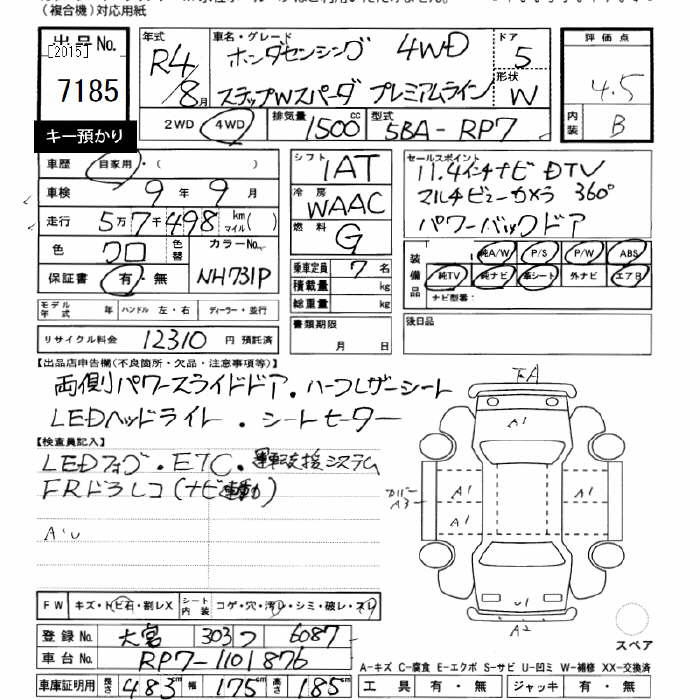 (複合機)対応用紙
出品No.
[2015]
7185
キー預かり
年式 R4/8月
車名・グレード ホンダセンシング 4WD
ステップWスパーダ プレミアムライン
ドア 5
形状 W
評価点
4.5
内装 B
2WD 4WD 排気量 1500cc 型式 5BA-RP7
車歴 自家用・( )
車検 9年9月
走行 5万7千498 km マイル( )
色 クロ 色替 カラーNo. NH731P
保証書 有・無
モデル年式 年 ハンドル 左・右 ディーラー・並行
リサイクル料金 12310円 預託済
シフト 1AT
冷房 WAAC
燃料 G
乗車定員 7名
積載量 kg
総重量 kg
書類期限
月 日
セールスポイント
11.4インチナビ DTV
マルチビューカメラ 360°
パワーバックドア
装備品 純A/W P/S P/W ABS
純TV 純ナビ 革シート 外ナビ エアB
ナビ型番:
後日品
【出品店申告欄(不良箇所・欠品・注意事項等)】
両側パワースライドドア・ハーフレザーシート
LEDヘッドライト・シートヒーター
【検査員記入】
LEDフォグ・ETC・運転支援システム
FRドラレコ(ナビ連動)
A'U
下A
A1
カバー A3
A1
A1
A1
U1
A2
スペア
FW キズ・トビ石・割レX シート内装 コゲ・穴・汚レ・シミ・破レ・スレ
登録No. 大宮 303 つ 6087
車台No. RP7-1101876
車庫証明用 長さ 483cm 幅 175cm 高さ 185cm
A-キズ C-腐食 E-エクボ S-サビ U-凹ミ W-補修 XX-交換済
工具 有・無 ジャッキ 有・無